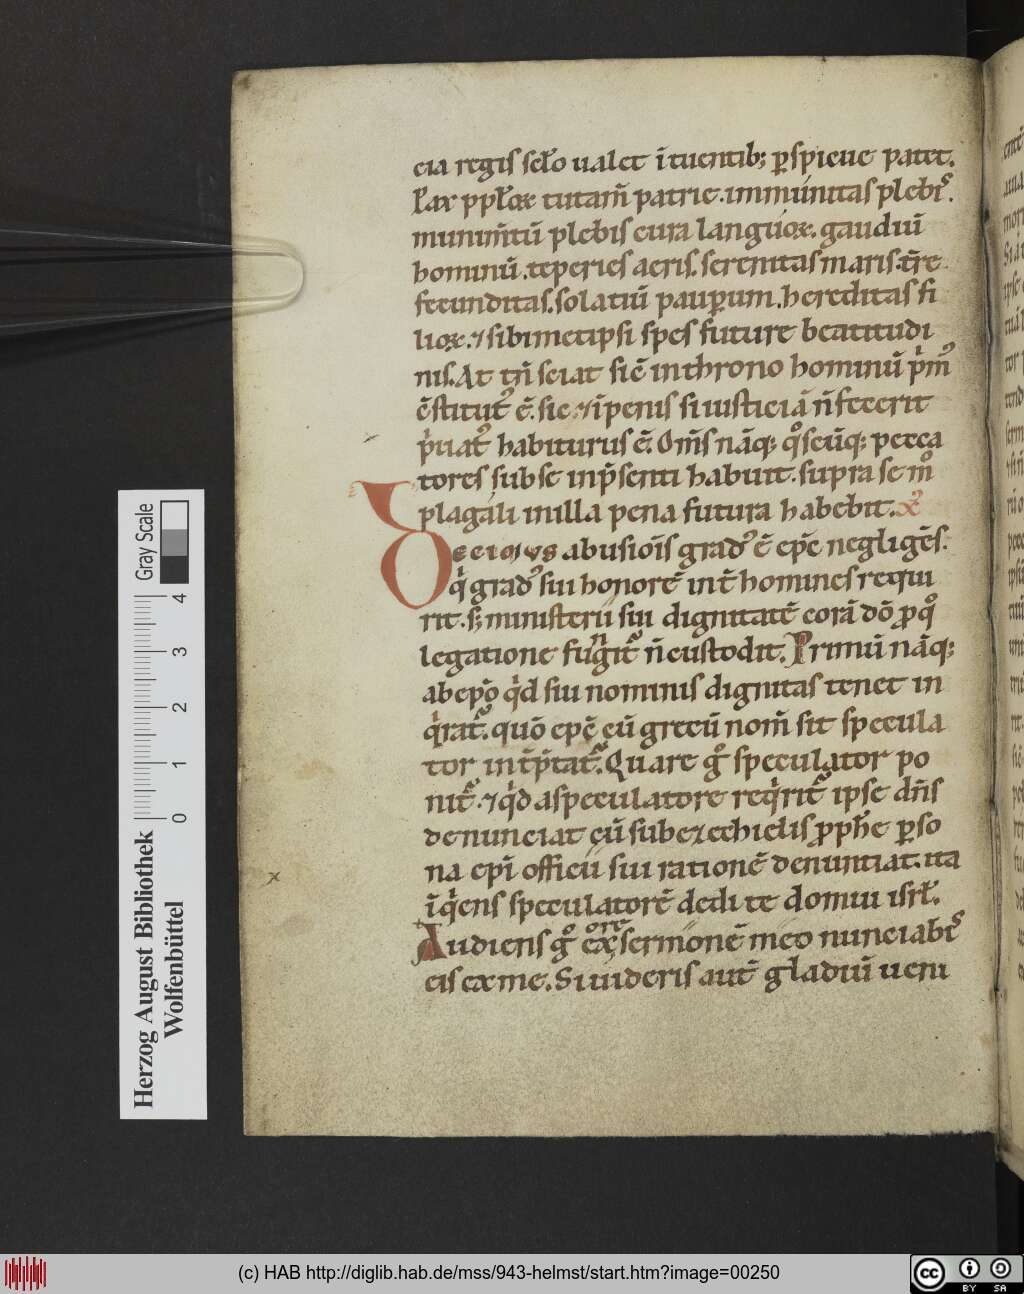 cia regis sclo ualet ituentib; pspicue patet.
Pax pplox tutam̄ patrie. immunitas plebis.
munim̄tū plebis cura languox. gaudiū
hominū. teperies aeris. serenitas maris. t̄re
fecunditas. solatiū pauperum. hereditas fi
liox. ⁊ sibimetipsi spes future beatitudi
nis. At tn̄ sciat sic̄ inthrono hominū p̍mꝰ
c̄stitutꝰ ē. sic ⁊ īpenis si iusticiā n̄ fecerit
p̍matꝰ habiturus ē. Om̄s nāq; qͦscūq; pecca
tores sub se inp̄senti habuit. supra se mͦ
plagali in illa pena futura habebit. xꝰ
Decimus abusiōis gradꝰ ē epc̄ negligēs.
q̍ gradꝰ sui honorē int̄ homines requi
rit. s; ministeriū sui dignitatē corā dō ꝓ qͦ
legatione fungit̄ n̄ custodit. Primū nāq;
ab epō q̍d sui nominis dignitas tenet in
q̍rat̄. quō epc̄ cū grecū nom̄ sit specula
tor int̄p̄tat̄. Quare gͦ speculator po
nit̄. ⁊ q̍d aspeculatore req̍rit̄ ipse dn̄s
denunciat cū sub ezechielis ꝓph̄e ꝑso
na epī officii sui rationē denuntiat. ita
īq̍ens speculatorē dedi te domui isrl̄.
Audiens gͦ ex ore sermonē meo nunciabis
eis ex me. Si uideris aut̄ gladiū ueni
Herzog August Bibliothek
Wolfenbüttel
0 1 2 3 4
Gray Scale
(c) HAB http://diglib.hab.de/mss/943-helmst/start.htm?image=00250
cc BY SA